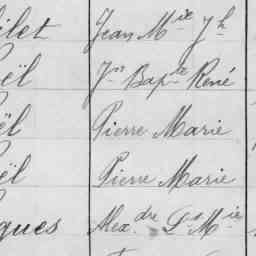 ilet Jean Mie Jh
ël Jn Bapte René
ël Pierre Marie
ël Pierre Marie
gues Alex.dre Ls Mie